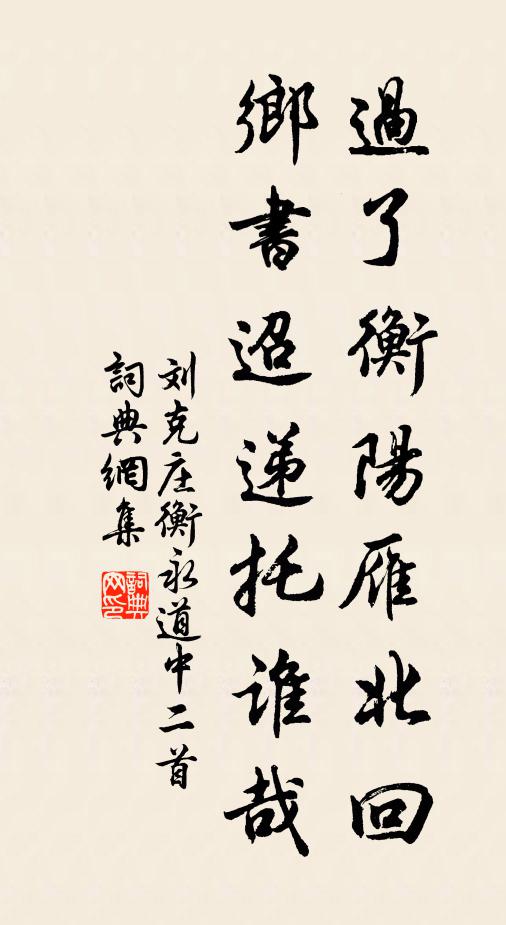 過了衡陽雁北回
鄉書迢递托誰哉
刘克庄衡永道中二首
詞典網集
詞典網印